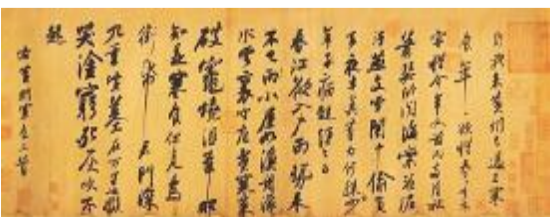 自我來黃州已過三寒
食年年欲惜春春去不
容惜今年又苦雨兩月秋
蕭瑟臥聞海棠花泥
汙燕支雪闇中偷負
去夜半真有力何殊少
年子病起頭已白
春江欲入戶雨勢來
不已雨小屋如漁舟濛濛
水雲裏空庖煮寒菜
破竈燒濕葦那
知是寒食但見烏
銜帋君門深
九重墳墓在萬里也擬
哭塗窮死灰吹不
起
右黃州寒食二首